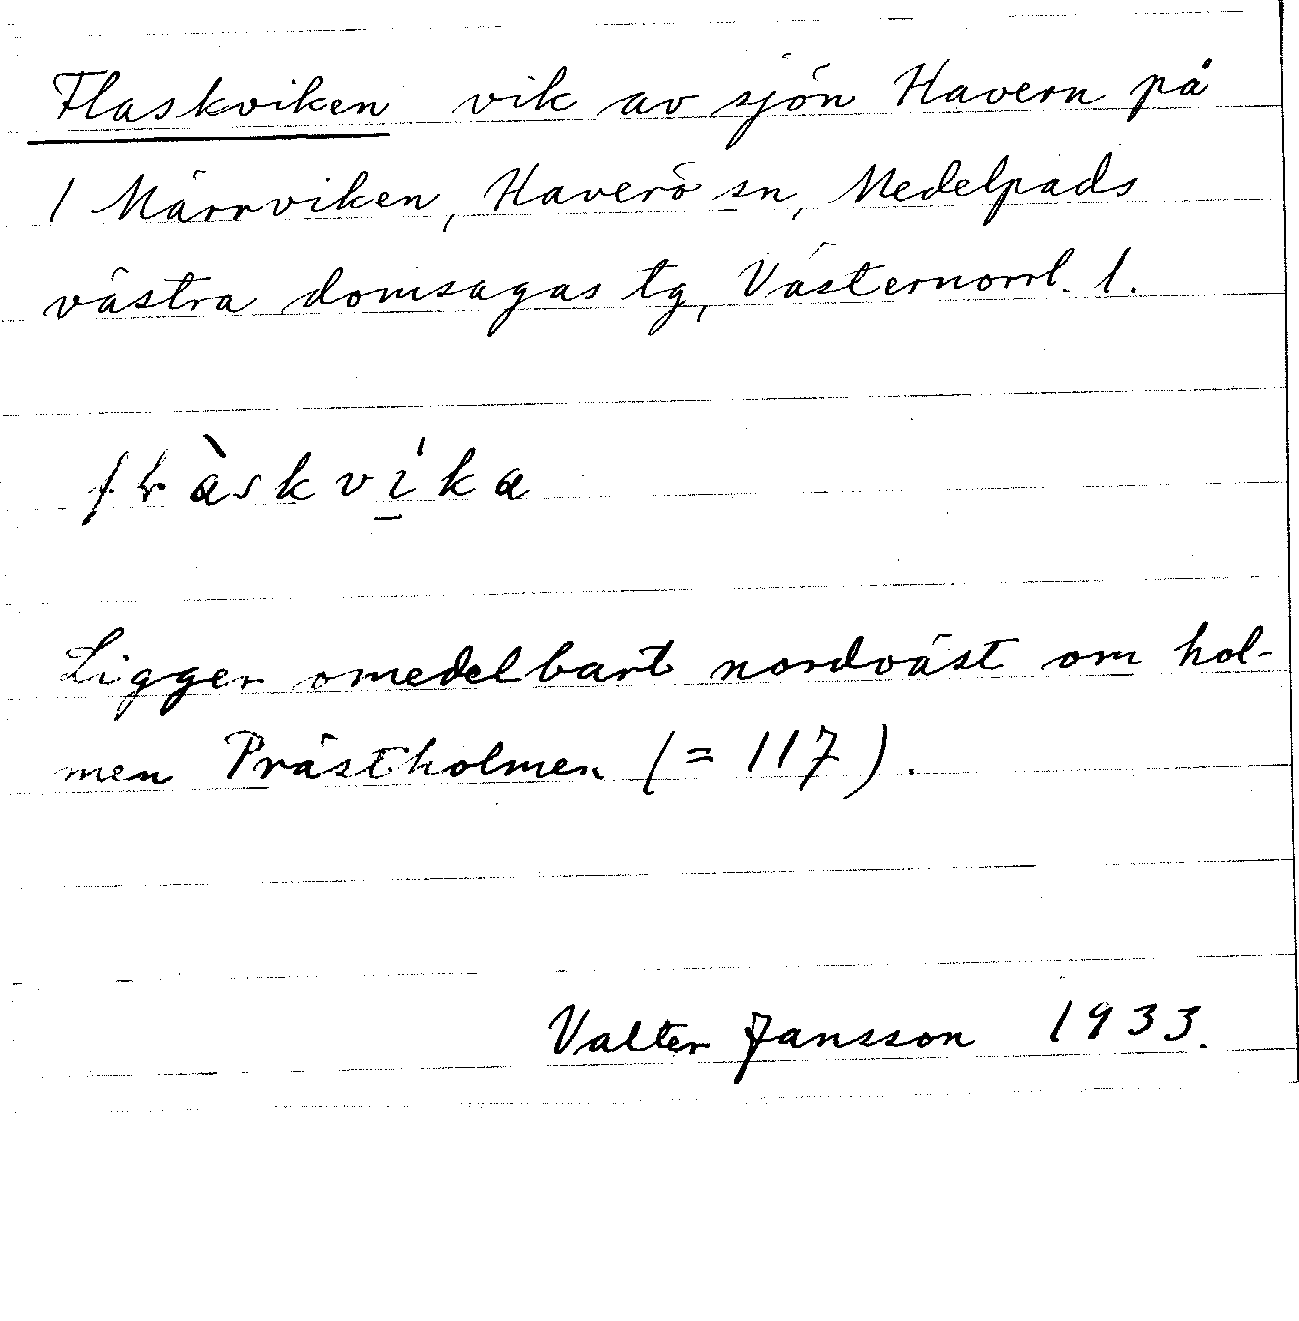 Flaskviken vik av sjön Havern på
1 Märrviken, Haverö sn, Medelpads
västra domsagas tg, Västernorrl. l.
fɫàskví̱ka
Ligger omedelbart nordväst om hol-
men Prästholmen (= 117).
Valter Jansson 1933.